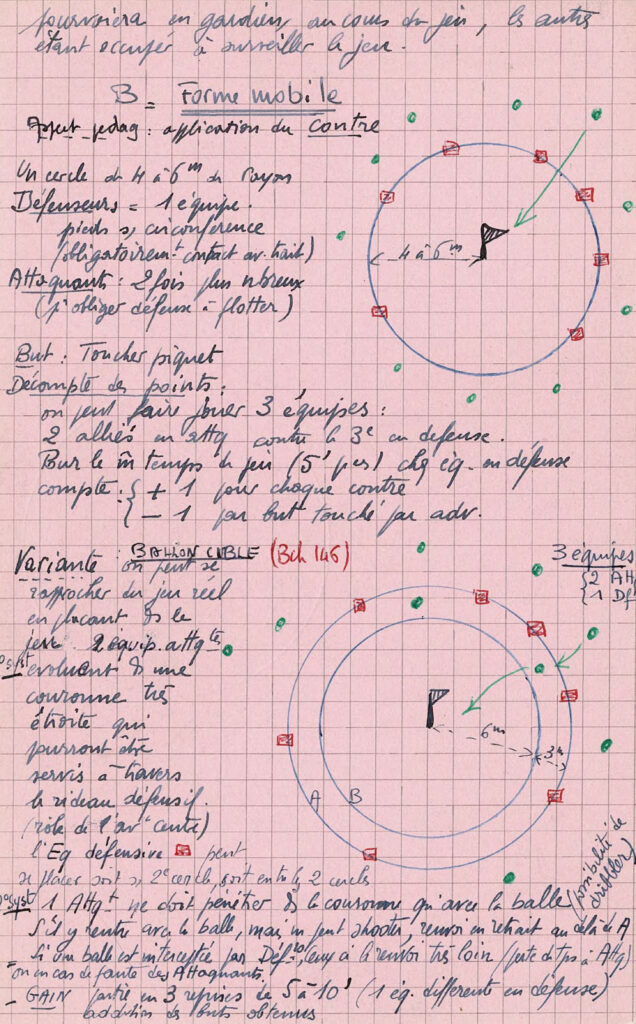 pourvoiera en gardiens au cours du jeu, les autres
étant occupé à surveiller le jeu.
B = Forme mobile
Aspect pedag : application du contre
Un cercle de 4 à 6m de rayon
Défenseurs = 1 équipe.
pieds s/ circonférence
(obligatoiremt contact av. trait)
Attaquants : 2 fois plus nbreux
(pr obliger défense à flotter)
4 à 6m
But : Toucher piquet
Décompte des points :
on peut faire jouer 3 équipes :
2 alliés en attq contre la 3e en defense.
Pour le m̄ temps de jeu (5' par) chq éq. en défense
compte : { + 1 pour chaque contre
{ – 1 par but touché par adv.
Variante : BALLON CIBLE (Bch 146)
on peut se
rapprocher du jeu réel
en plaçant ds le
jeu 2 equip. attqtes
évoluant ds une
couronne très
étroite qui
pourront être
servis à travers
le rideau défensif.
(rôle de l'avt centre)
l'Eq défensive peut
se placer soit s/ 2e cercle, soit entre les 2 cercles
3 équipes
{ 2 Att
{ 1 Df
1o syst
6m
3m
A B
2o syst 1 Attqt ne doit pénétrer ds la couronne qu'avec la balle
(possibilité de
dribbler)
S'il y rentre avec la balle, mais ne peut shooter, renvoi en retrait au delà de A
= Si une balle est interceptée par Déf. ceux ci la renvoi très loin (perte de tps à Attq)
ou en cas de faute des Attaquants.
– GAIN partie en 3 reprises de 5 à 10' (1 éq. differente en défense)
addition des buts obtenus